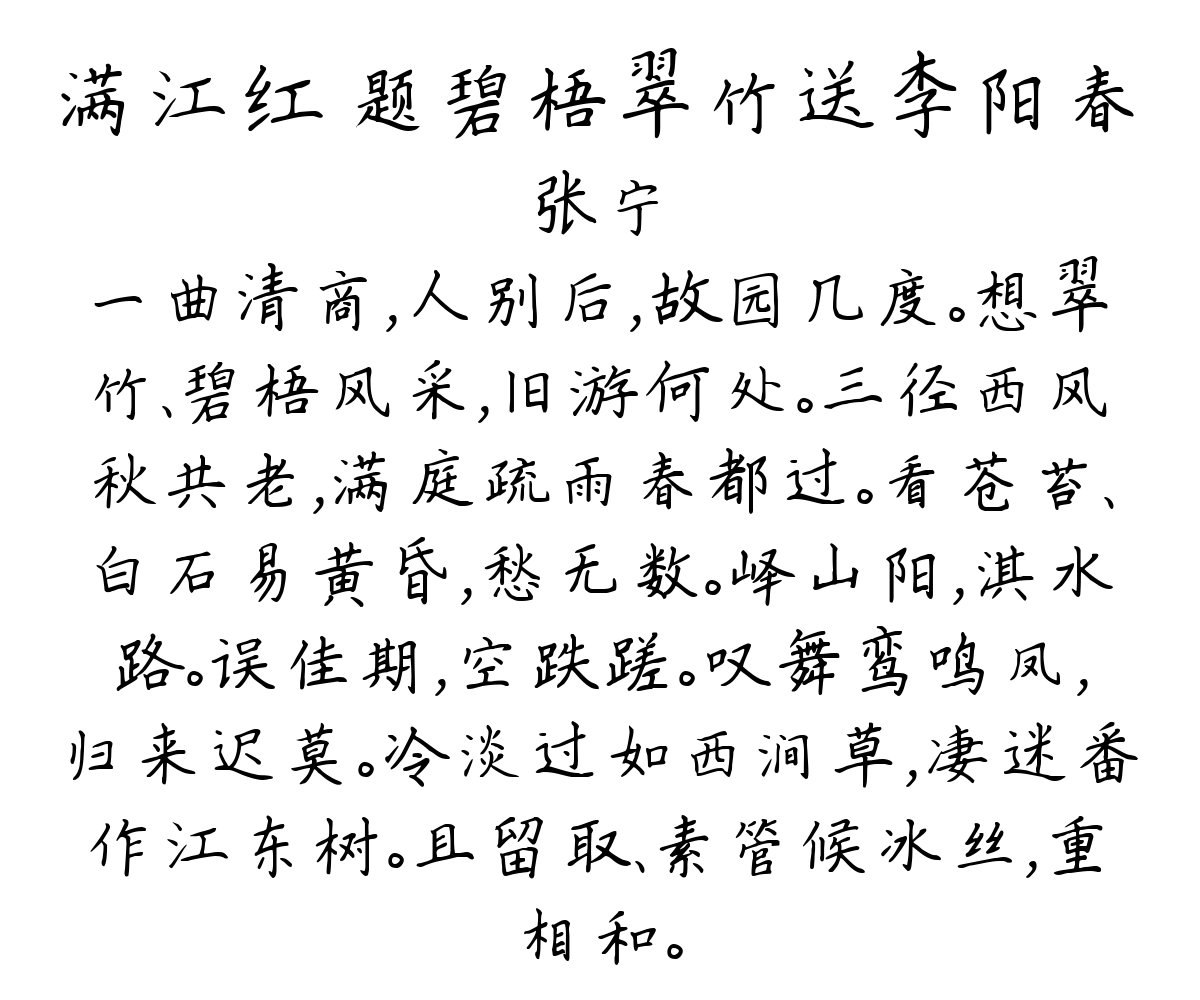 满江红 题碧梧翠竹送李阳春
张宁
一曲清商,人别后,故园几度。想翠
竹、碧梧风采,旧游何处。三径西风
秋共老,满庭疏雨春都过。看苍苔、
白石易黄昏,愁无数。峄山阳,淇水
路。误佳期,空跌蹉。叹舞鸾鸣凤,
归来迟莫。冷淡过如西涧草,凄迷番
作江东树。且留取、素管候冰丝,重
相和。